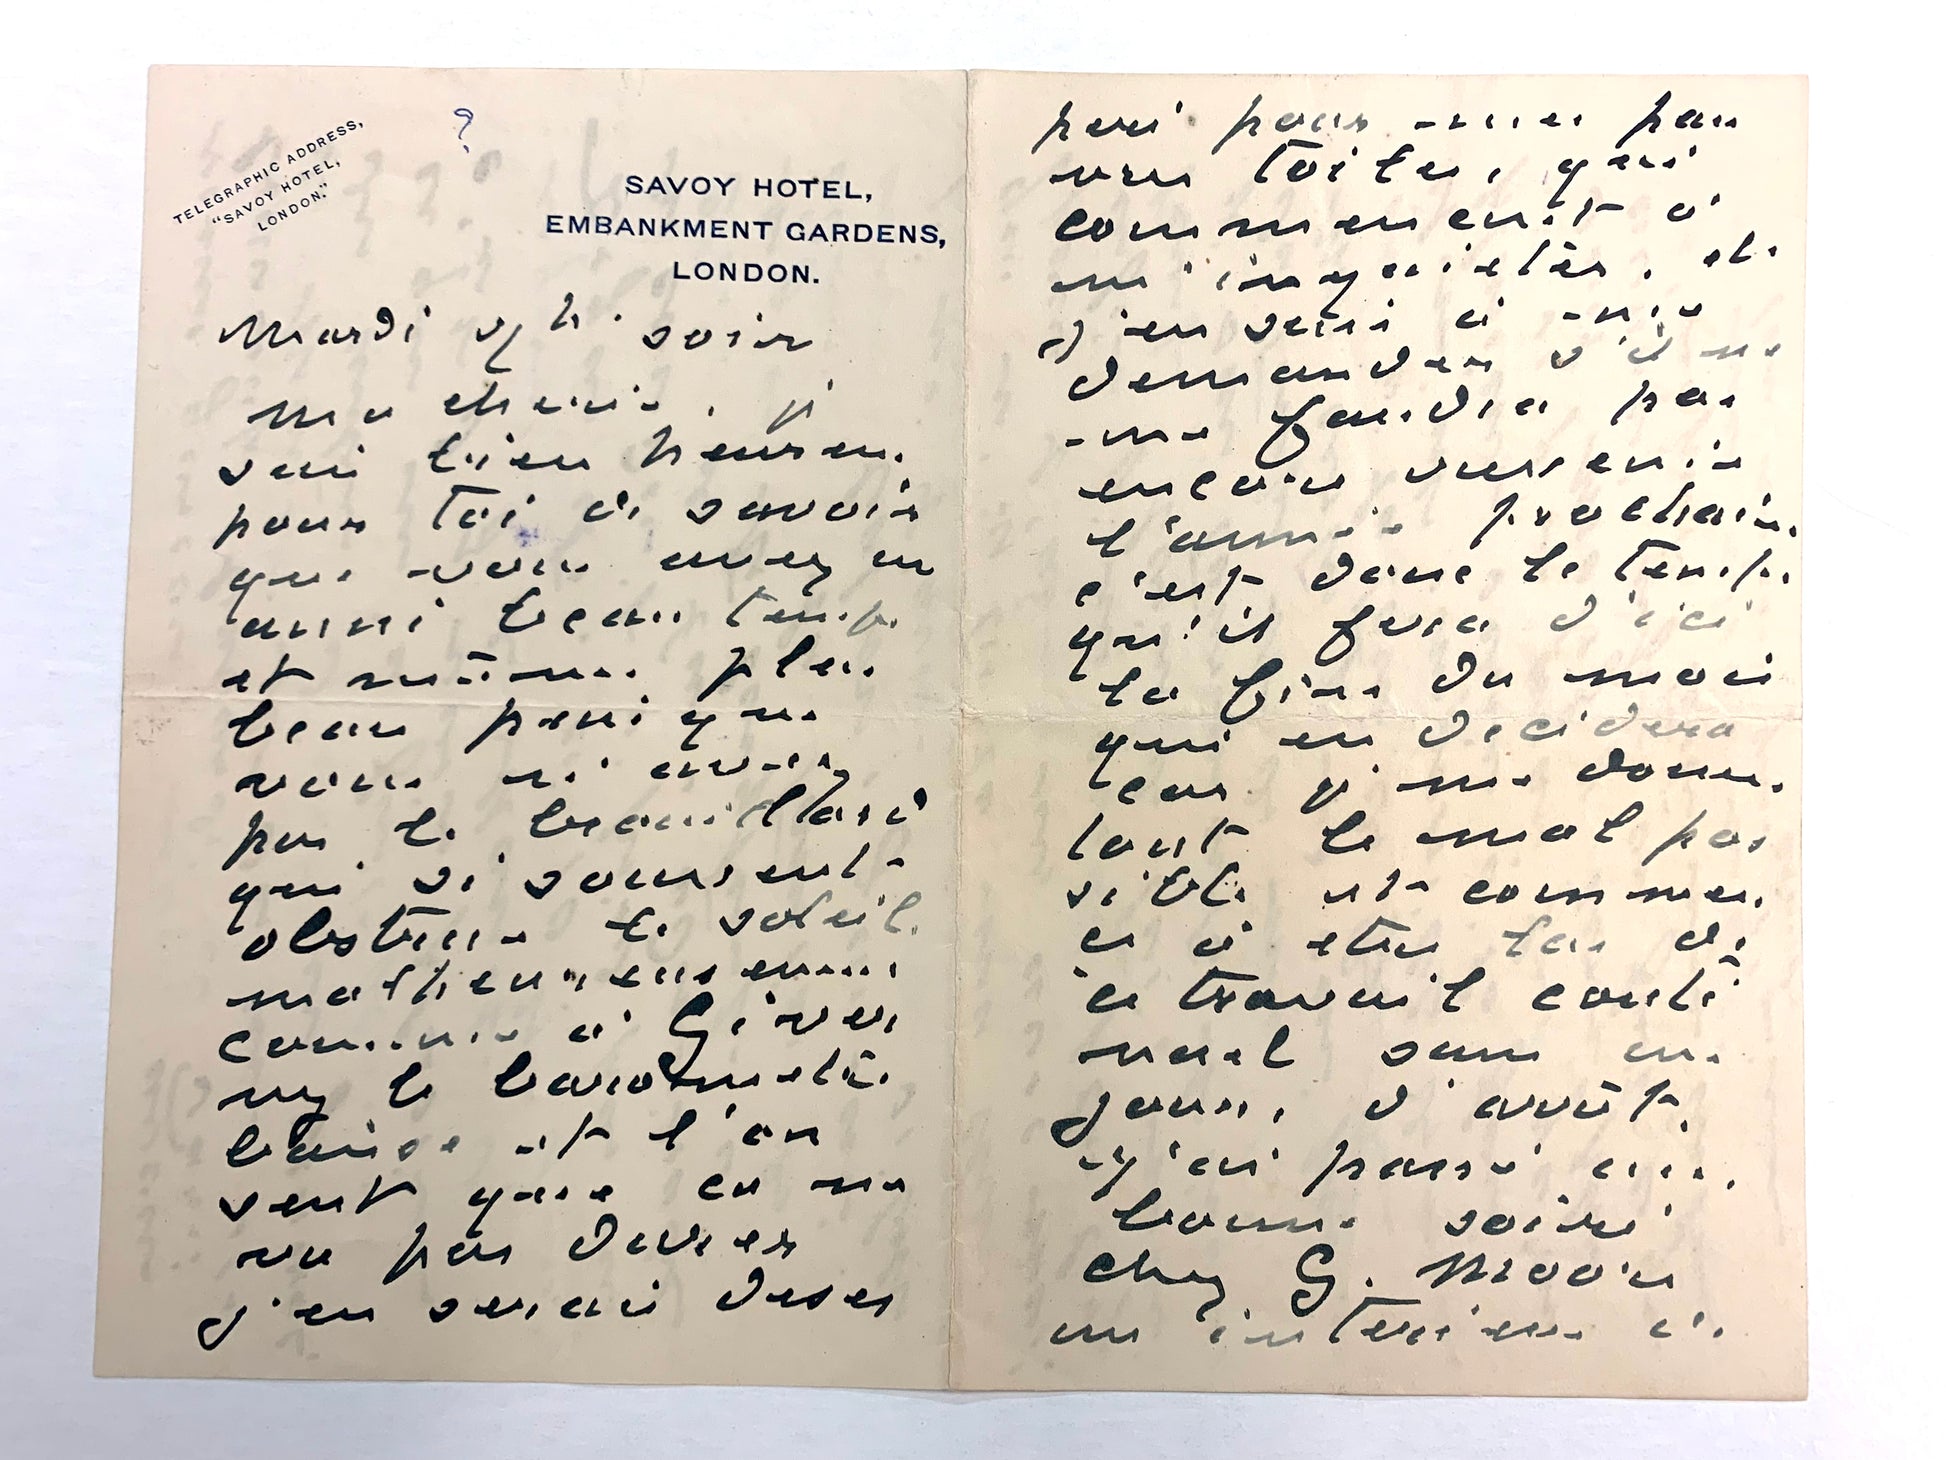 TELEGRAPHIC ADDRESS,
"SAVOY HOTEL,
LONDON."
?
SAVOY HOTEL,
EMBANKMENT GARDENS,
LONDON.
Mardi 9h. soir
Ma cherie, je
suis bien heureux
pour toi de savoir
que vous avez eu
aussi beau temps
et même plus
beau puisque
vous n'avez
pas le brouillard
qui si souvent
obstrue le soleil.
malheureusement
comme à Giver
ny le baromètre
baisse et l'on
sent que ça ne
va pas durer
j'en serais deses
péré pour mes pau
vres toiles, qui
commencent à
m'inquiéter, et
j'en suis à me
demander s'il ne
me faudra pas
encore revenir
l'année prochaine.
c'est donc le temps
qu'il fera d'ici
la fin du mois
qui en decidera
car je me donne
tout le mal pos
sible et commen
ce à être las de
ce travail conti
nuel sans un
jour d'arrêt.
J'ai passé une
bonne soirée
chez G. Moore
un intérieur